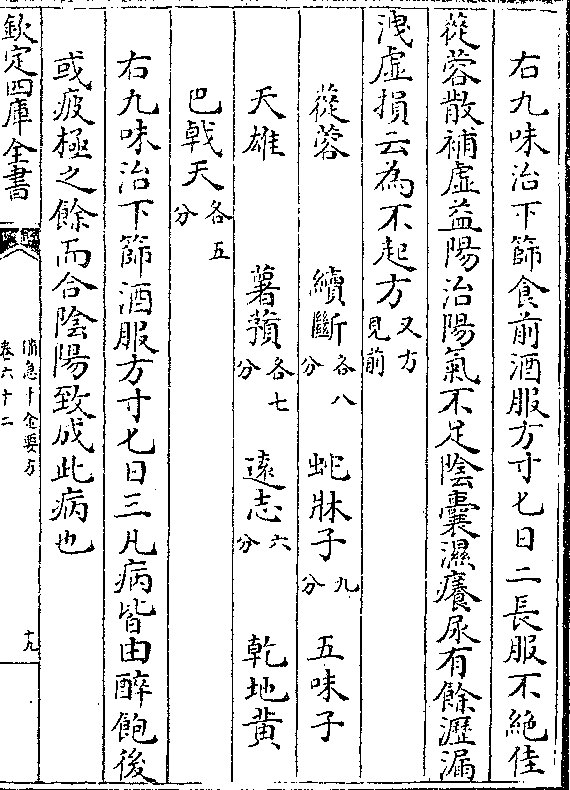 右九味治下篩食前酒服方寸匕日二長服不絶佳
蓯蓉散補虚益陽治陽氣不足陰囊濕癢尿有餘瀝漏
洩虚損云為不起方又方見前
蓯蓉 續斷各八分 蛇牀子九分 五味子
天雄 薯蕷各七分 遠志六分 乾地黄
巴戟天各五分
右九味治下篩酒服方寸匕日三凡病皆由醉飽後
或疲極之餘而合陰陽致成此病也
欽定四庫全書
備急千金要方
卷六十二
十九